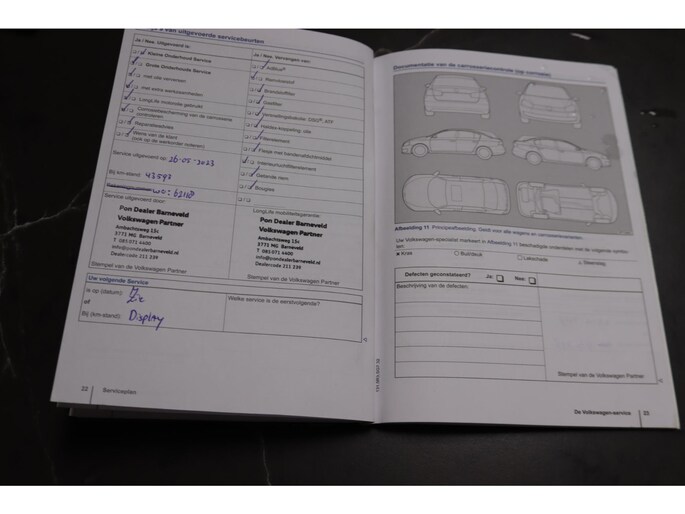 van uitgevoerde servicebeurten
Ja / Nee Uitgevoerd is:
Kleine Onderhoud Service
Grote Onderhouds Service
met olie verversen
met extra werkzaamheden
LongLife motorolie gebruikt
Reparatieadvies
Wens van de klant
(ook op de werkorder noteren)
Service uitgevoerd op: 26-05-2023
Bij km-stand: 43593
Service uitgevoerd door:
Pon Dealer Barneveld
Volkswagen Partner
Ambachtsweg 15c
3771 MG Barneveld
T 085 071 4400
info@pondealerbarneveld.nl
Dealercode 211 239
Stempel van de Volkswagen Partner
Ja / Nee Vervangen zijn:
AdBlue®
Remvloeistof
Brandstoffilter
Gasfilter
Haldex-koppeling: olie
Interieurluchtfilterelement
Getande riem
Bougies
LongLife mobiliteitsgarantie:
Pon Dealer Barneveld
Volkswagen Partner
Ambachtsweg 15c
3771 MG Barneveld
T 085 071 4400
info@pondealerbarneveld.nl
Dealercode 211 239
Stempel van de Volkswagen Partner
Uw volgende Service
is op (datum):
of
Bij (km-stand): Display
Welke service is de eerstvolgende?
22 Serviceplan
Documentatie van de carrosseriecontrole (op corrosie)
Afbeelding 11 Principeafbeelding. Geldt voor alle wagens en carrosserievarianten.
Uw Volkswagen-specialist markeert in Afbeelding 11 beschadigde onderdelen met de volgende symbolen:
Kras
Buil/deuk
Lakschade
Steenslag
Defecten geconstateerd? Ja: Nee:
Beschrijving van de defecten:
Stempel van de Volkswagen Partner
De Volkswagen-service 23